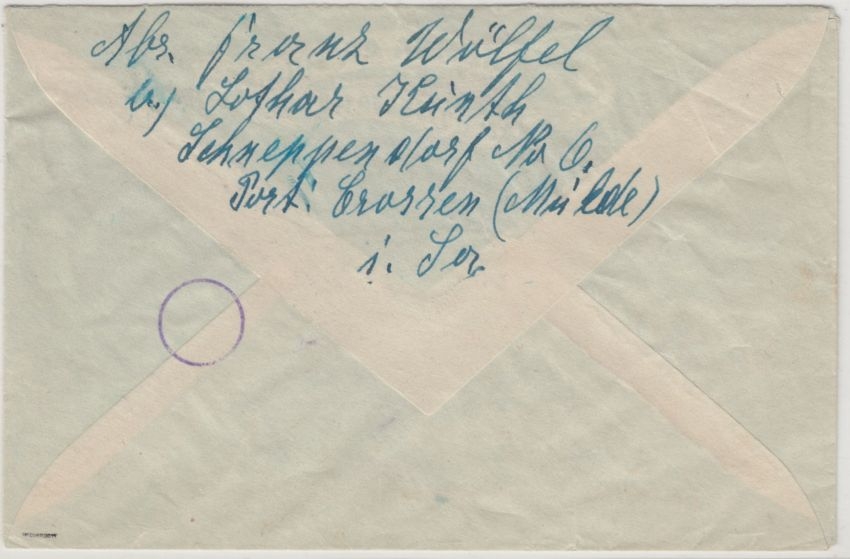 Abs. Franz Wölfel
b./ Lothar Kunth
Schneppendorf No 6.
Post. Crossen (Mulde)
i. Sa.